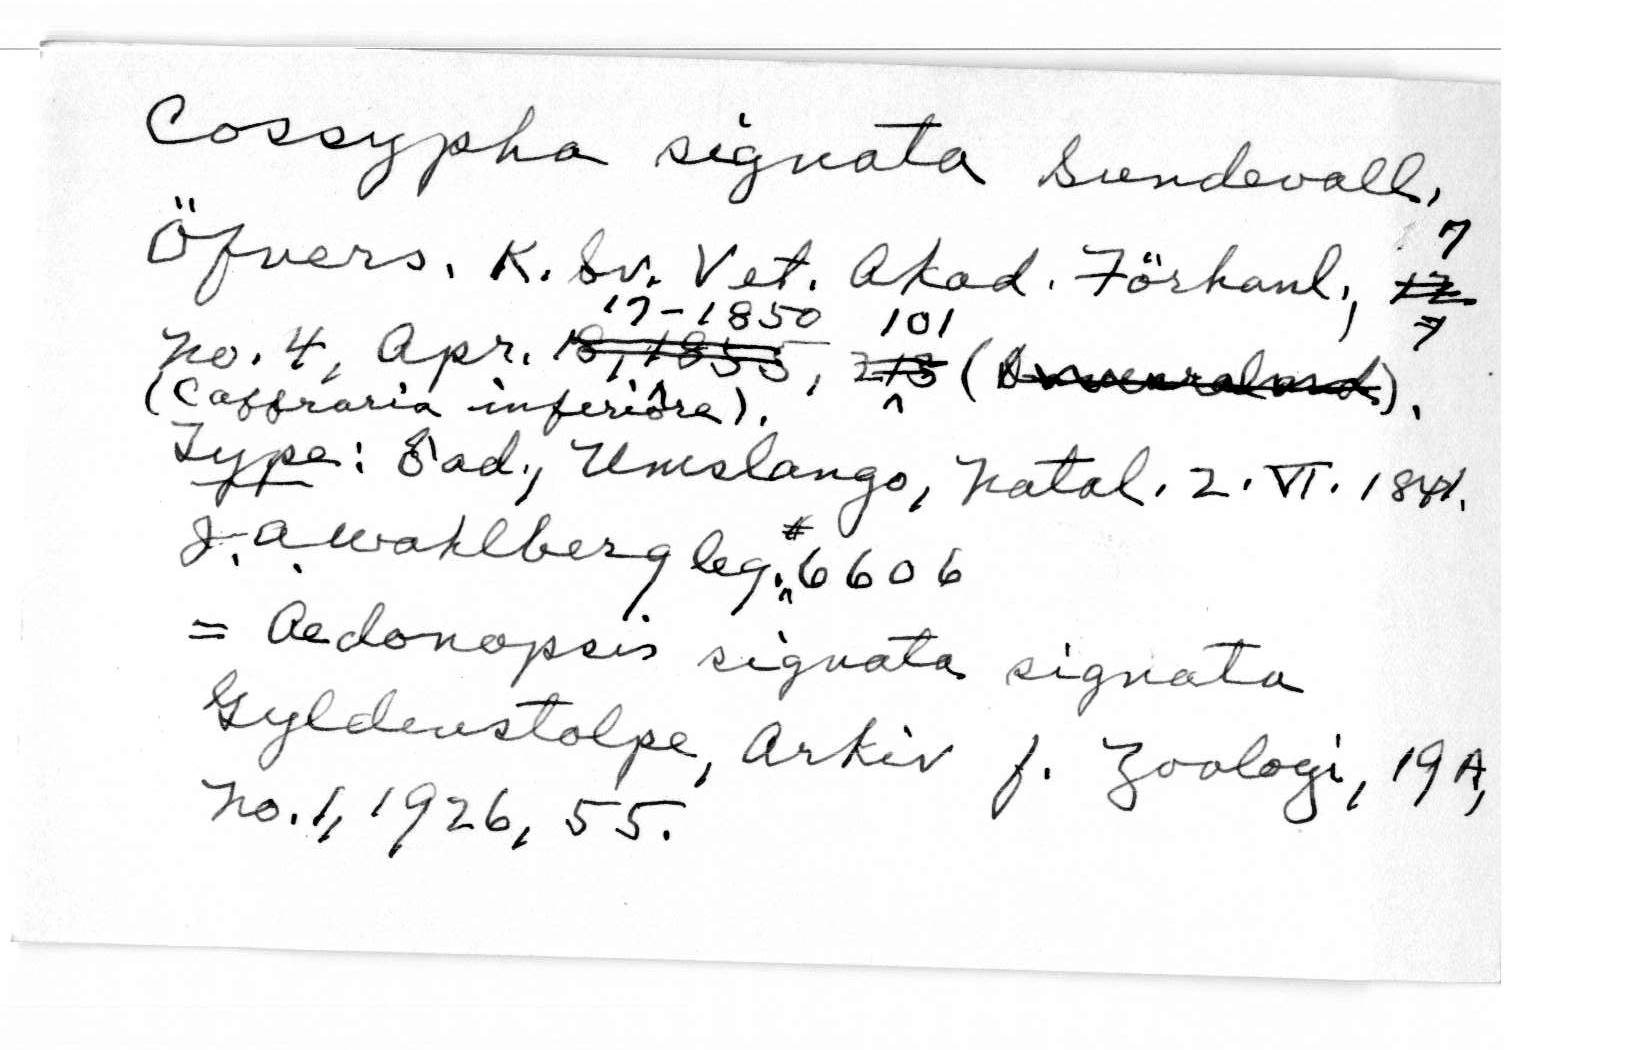 Cossypha signata Sundevall,
Öfvers. K. Sv. Vet. Akad. Förhanl, 7
17-1850 101
No. 4, Apr. 18, 1855, 213 ( ).
(Caffraria inferiora).
Type: ♂ ad., Umslango, Natal. 2. VI. 1841.
J. A. Wahlberg leg. #6606
= Aedonopsis signata signata
Gyldenstolpe, Arkiv f. Zoologi, 19A,
No. 1, 1926, 55.